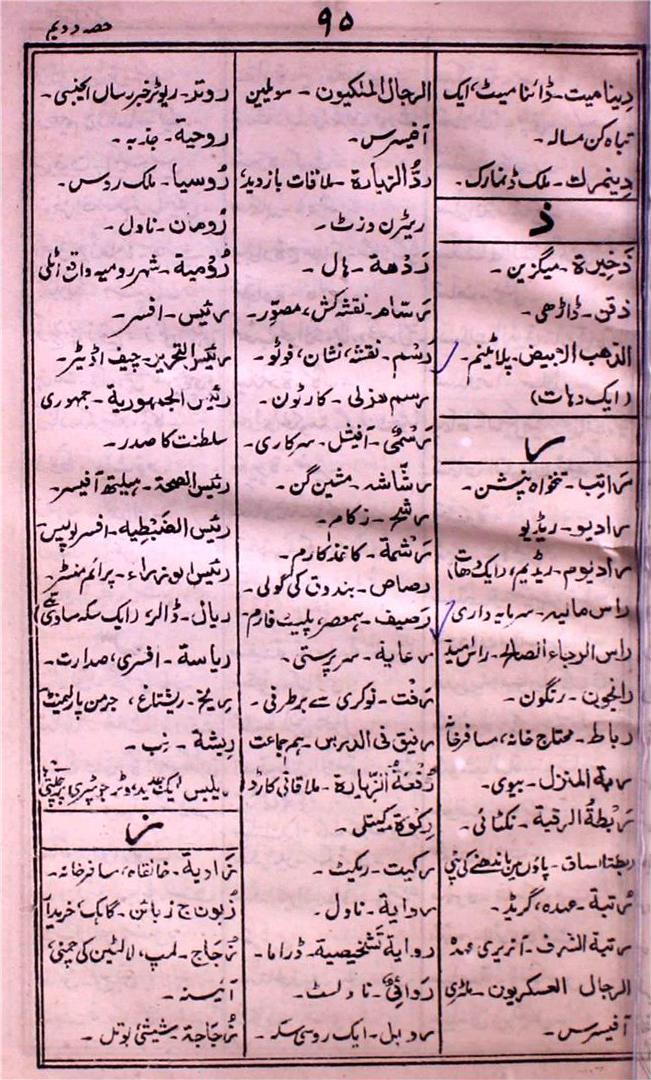 ۹۵
حصہ دویم
دینامیت۔ ڈائنامیٹ، ایک
تباہ کن مسالہ۔
دینمرك۔ ملک ڈنمارک۔
ذ
ذَخِیرة۔ میگزین۔
ذقن۔ ڈاڑھی۔
الذهب الابیض۔ پلاٹینم۔
(ایک دہات)
ر
رَاتِب۔ تنخواہ پنشن۔
رادیو۔ ریڈیو
رادیوم۔ ریڈیم، (ایک دہات)
راس مالیه۔ سرمایہ داری
راس الرجاء الصالح۔ راس امید
رانجون۔ رنگون۔
رباط۔ محتاج خانہ، مسافرخانہ
ربة المنزل۔ بیوی۔
رَبْطَةُ الرقبة۔ نکٹائی۔
ربطة الساق۔ پاؤں میں باندھنے کی پٹی
رُتبة۔ عہدہ، گریڈ۔
رتبة الشرف۔ آنریری عہدہ
الرجال العسکریون۔ ملٹری
آفیسرس۔
الرجال الملکیون۔ سویلین
آفیسرس۔
ردُّ الزیارة۔ ملاقات بازدید،
ریٹرن وزٹ۔
رَدْهة۔ ہال۔
رسّام۔ نقشہ کش، مصوّر۔
رسْم۔ نقشہ، نشان، فوٹو۔
رسم هزلی۔ کارٹون۔
رَسْمِیّ۔ افیشل۔ سرکاری۔
رشّاشه۔ مشین گن۔
رشح۔ زکام۔
رَشمة۔ کاغذ کا رم۔
رصاص۔ بندوق کی گولی۔
رصیف۔ ہمعصر، پلیٹ فارم
رعایة۔ سرپرستی۔
رَفت۔ نوکری سے برطرفی۔
رفیق فی الدرس۔ ہم جماعت
رُقْعَةُ الزِّیارة۔ ملاقاتی کارڈ
رکوة۔ کیتلی۔
رکیت۔ ریکٹ۔
روایة۔ ناول۔
روایة تشخیصیة۔ ڈراما۔
رَوائیّ۔ ناولسٹ۔
روبل۔ ایک روسی سکہ۔
روتر۔ ریوٹر خبر رساں ایجنسی۔
روحیة۔ جذبہ۔
رُوسیا۔ ملک روس۔
رُومان۔ ناول۔
رُوْمِیة۔ شہر رومیہ واقع اٹلی
رئیس۔ افسر۔
رئیس التحریر۔ چیف اڈیٹر۔
رئیس الجمهوریة۔ جمہوری
سلطنت کا صدر۔
رئیس الصحة۔ ہیلتھ آفیسر۔
رئیس الضَبْطِیه۔ افسر پولیس
رئیس الوزراء۔ پرائم منسٹر۔
ریال۔ ڈالر، (ایک سکہ
ریاسة۔ افسری، صدارت۔
ریخ۔ ریشتاغ، جرمن پارلیمنٹ
رِیشة۔ نب۔
ز
زاویة۔ خانقاہ، مسافرخانہ۔
زُبون ج زبائن۔ گاہک، خریدار
زُجاج۔ لمپ، لالٹین کی چمنی،
آئینہ۔
زُجاجة۔ شیشی، بوتل۔